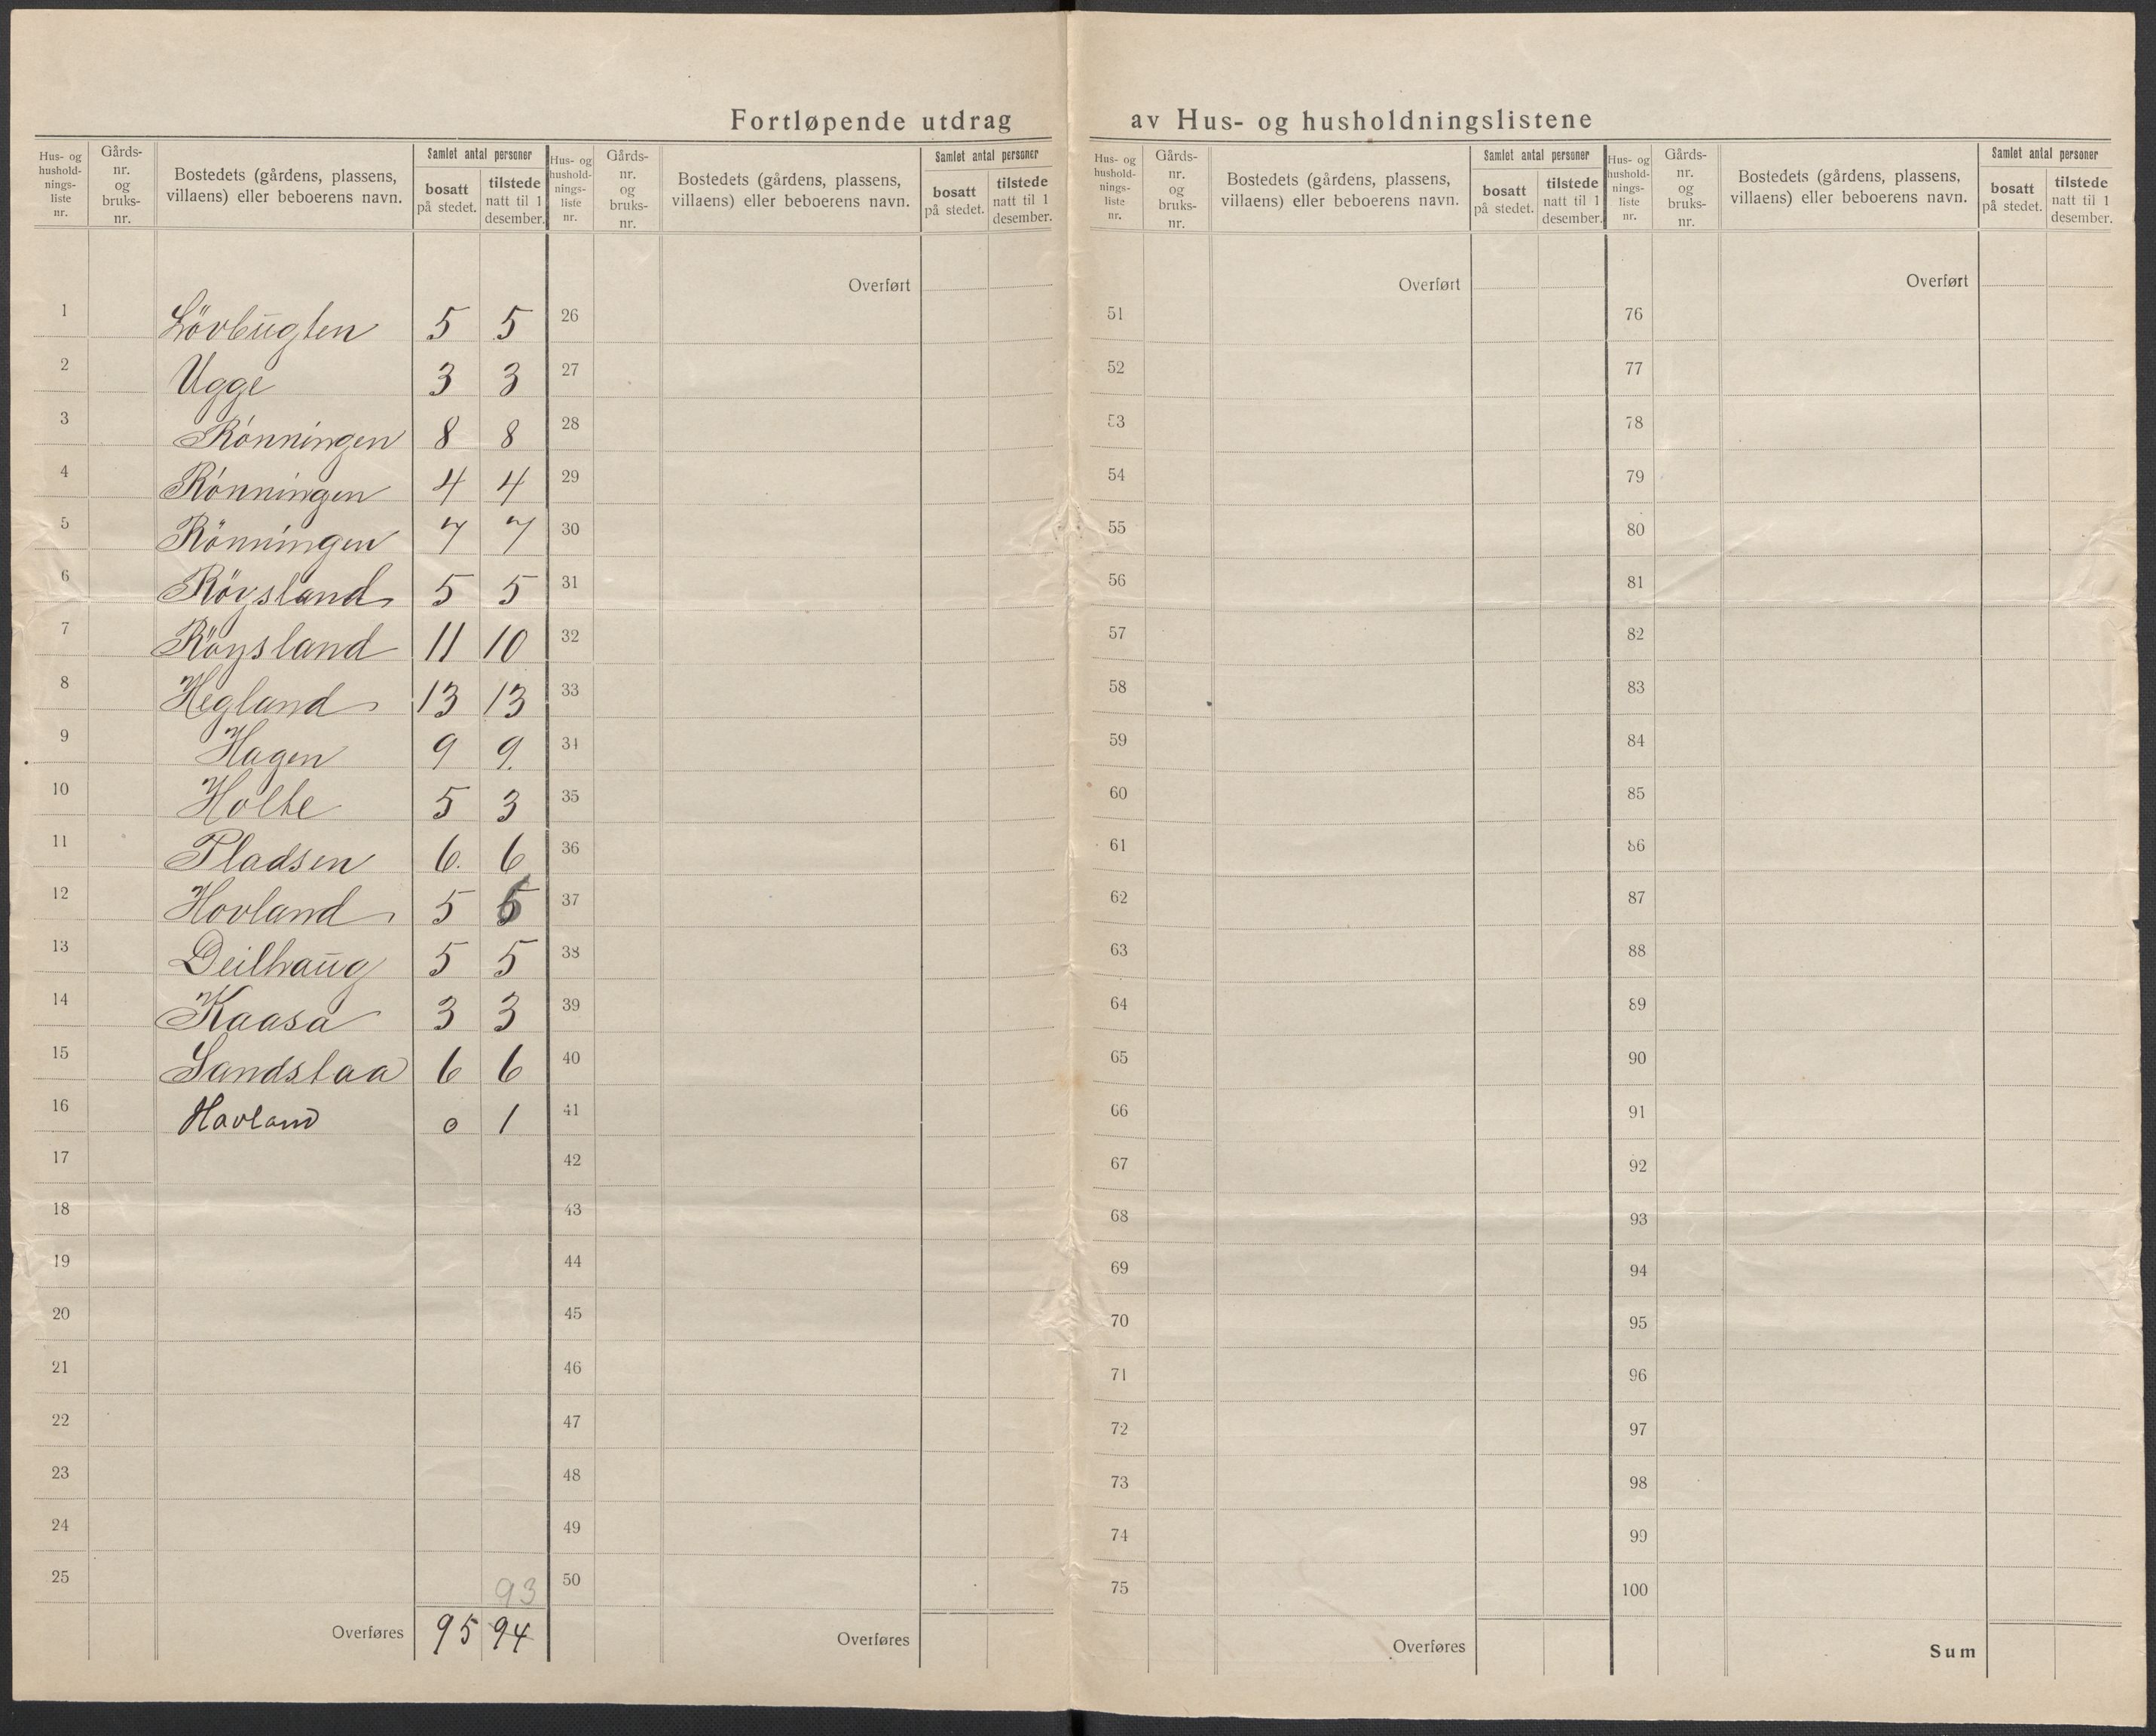 Fortløpende utdrag av Hus- og husholdningslistene
Hus- og hushold-nings-liste nr. Gårds-nr. og bruks-nr. Bostedets (gårdens, plassens, villaens) eller beboerens navn. Samlet antal personer bosatt på stedet. tilstede natt til 1 desember.
Hus- og hushold-nings-liste nr. Gårds-nr. og bruks-nr. Bostedets (gårdens, plassens, villaens) eller beboerens navn. Samlet antal personer bosatt på stedet. tilstede natt til 1 desember.
Hus- og hushold-nings-liste nr. Gårds-nr. og bruks-nr. Bostedets (gårdens, plassens, villaens) eller beboerens navn. Samlet antal personer bosatt på stedet. tilstede natt til 1 desember.
Hus- og hushold-nings-liste nr. Gårds-nr. og bruks-nr. Bostedets (gårdens, plassens, villaens) eller beboerens navn. Samlet antal personer bosatt på stedet. tilstede natt til 1 desember.
Overført Overført Overført
1 Lövbugten 5 5 26 51 76
2 Ugge 3 3 27 52 77
3 Rönningen 8 8 28 53 78
4 Rönningen 4 4 29 54 79
5 Rönningen 7 7 30 55 80
6 Röysland 5 5 31 56 81
7 Röysland 11 10 32 57 82
8 Hegland 13 13 33 58 83
9 Hagen 9 9. 34 59 84
10 Holte 5 3 35 60 85
11 Pladsen 6. 6 36 61 86
12 Hovland 5 5 37 62 87
13 Deilhaug 5 5 38 63 88
14 Kaasa 3 3 39 64 89
15 Sandstaa 6 6 40 65 90
16 Hovland 0 1 41 66 91
17 42 67 92
18 43 68 93
19 44 69 94
20 45 70 95
21 46 71 96
22 47 72 97
23 48 73 98
24 49 74 99
25 93 50 75 100
Overføres 95 94 Overføres Overføres Sum